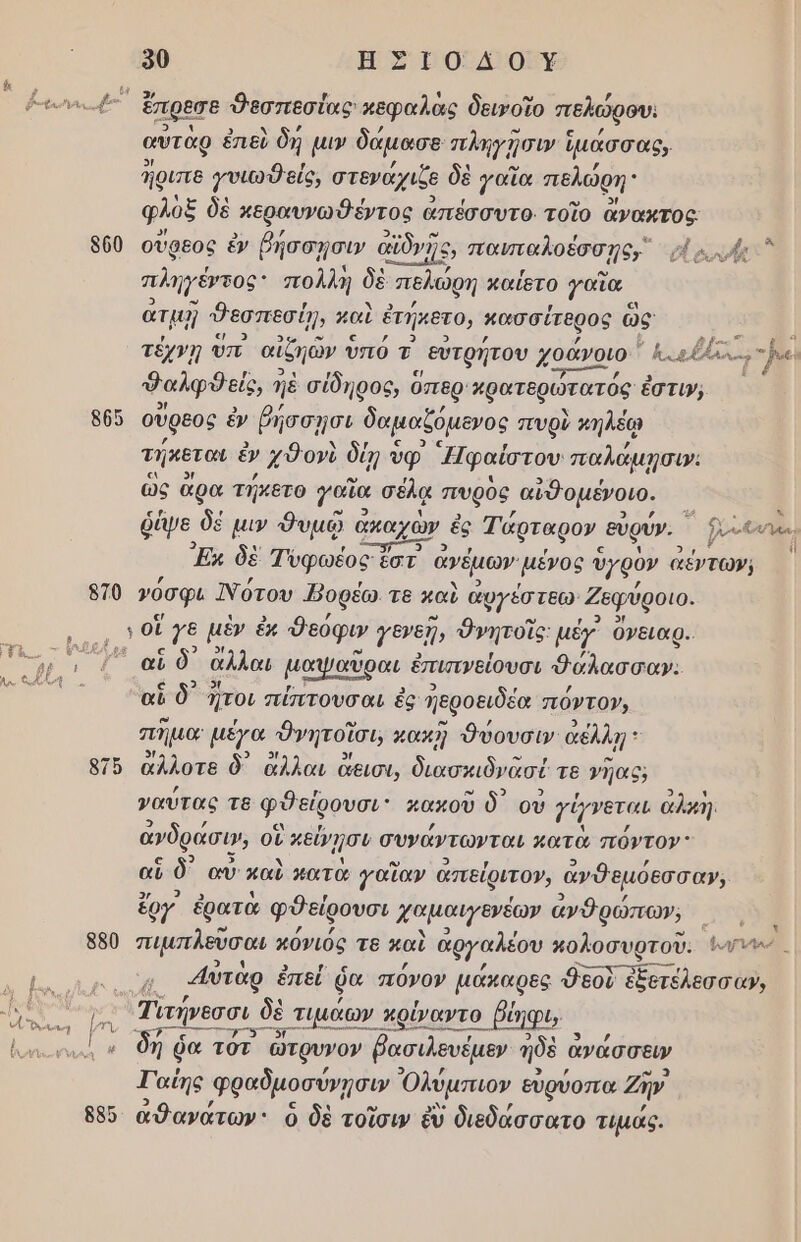 30 ΗΣΙΟΔΟΥ
ἔπρεσε θεσπεσίας κεφαλὰς δεινοῖο πελώρου.
αὐτὰρ ἐπεὶ δή μιν δάμασε πληγῇσιν ἱμάσσας,
ἤριπε γυιωθείς, στενάχιζε δὲ γαῖα πελώρη·
φλὸξ δὲ κεραυνωθέντος ἀπέσσυτο τοῖο ἄνακτος
860 οὔρεος ἐν βήσσῃσιν ἀϊδνῇς, παιπαλοέσσῃς,
πληγέντος· πολλὴ δὲ πελώρη καίετο γαῖα
ἀτμῇ θεσπεσίῃ, καὶ ἐτήκετο, κασσίτερος ὣς
τέχνῃ ὑπ’ αἰζηῶν ὑπό τ’ εὐτρήτου χοάνοιο
θαλφθείς, ἠὲ σίδηρος, ὅπερ κρατερώτατός ἐστιν,
865 οὔρεος ἐν βήσσῃσι δαμαζόμενος πυρὶ κηλέῳ
τήκεται ἐν χθονὶ δίῃ ὑφ’ Ἡφαίστου παλάμῃσιν.
ὣς ἄρα τήκετο γαῖα σέλᾳ πυρὸς αἰθομένοιο.
ῥίψε δέ μιν θυμῷ ἀκαχὼν ἐς Τάρταρον εὐρύν.
Ἐκ δὲ Τυφωέος ἔστ’ ἀνέμων μένος ὑγρὸν ἀέντων,
870 νόσφι Νότου Βορέω τε καὶ ἀργέστεω Ζεφύροιο.
οἵ γε μὲν ἐκ θεόφιν γενεῇ, θνητοῖς μέγ’ ὄνειαρ.
αἱ δ’ ἄλλαι μαψαῦραι ἐπιπνείουσι θάλασσαν.
αἱ δ’ ἤτοι πίπτουσαι ἐς ἠεροειδέα πόντον,
πῆμα μέγα θνητοῖσι, κακῇ θύουσιν ἀέλλῃ·
875 ἄλλοτε δ’ ἄλλαι ἄεισι, διασκιδνᾶσί τε νῆας,
ναύτας τε φθείρουσι· κακοῦ δ’ οὐ γίγνεται ἀλκὴ
ἀνδράσιν, οἳ κείνῃσι συνάντωνται κατὰ πόντον·
αἱ δ’ αὖ καὶ κατὰ γαῖαν ἀπείριτον, ἀνθεμόεσσαν,
ἔργ’ ἐρατὰ φθείρουσι χαμαιγενέων ἀνθρώπων,
880 πιμπλεῦσαι κόνιός τε καὶ ἀργαλέου κολοσυρτοῦ.
Αὐτὰρ ἐπεί ῥα πόνον μάκαρες θεοὶ ἐξετέλεσσαν,
Τιτήνεσσι δὲ τιμάων κρίναντο βίηφι,
δή ῥα τότ’ ὤτρυνον βασιλευέμεν ἠδὲ ἀνάσσειν
Γαίης φραδμοσύνῃσιν Ὀλύμπιον εὐρύοπα Ζῆν’
885 ἀθανάτων· ὁ δὲ τοῖσιν ἐῢ διεδάσσατο τιμάς.